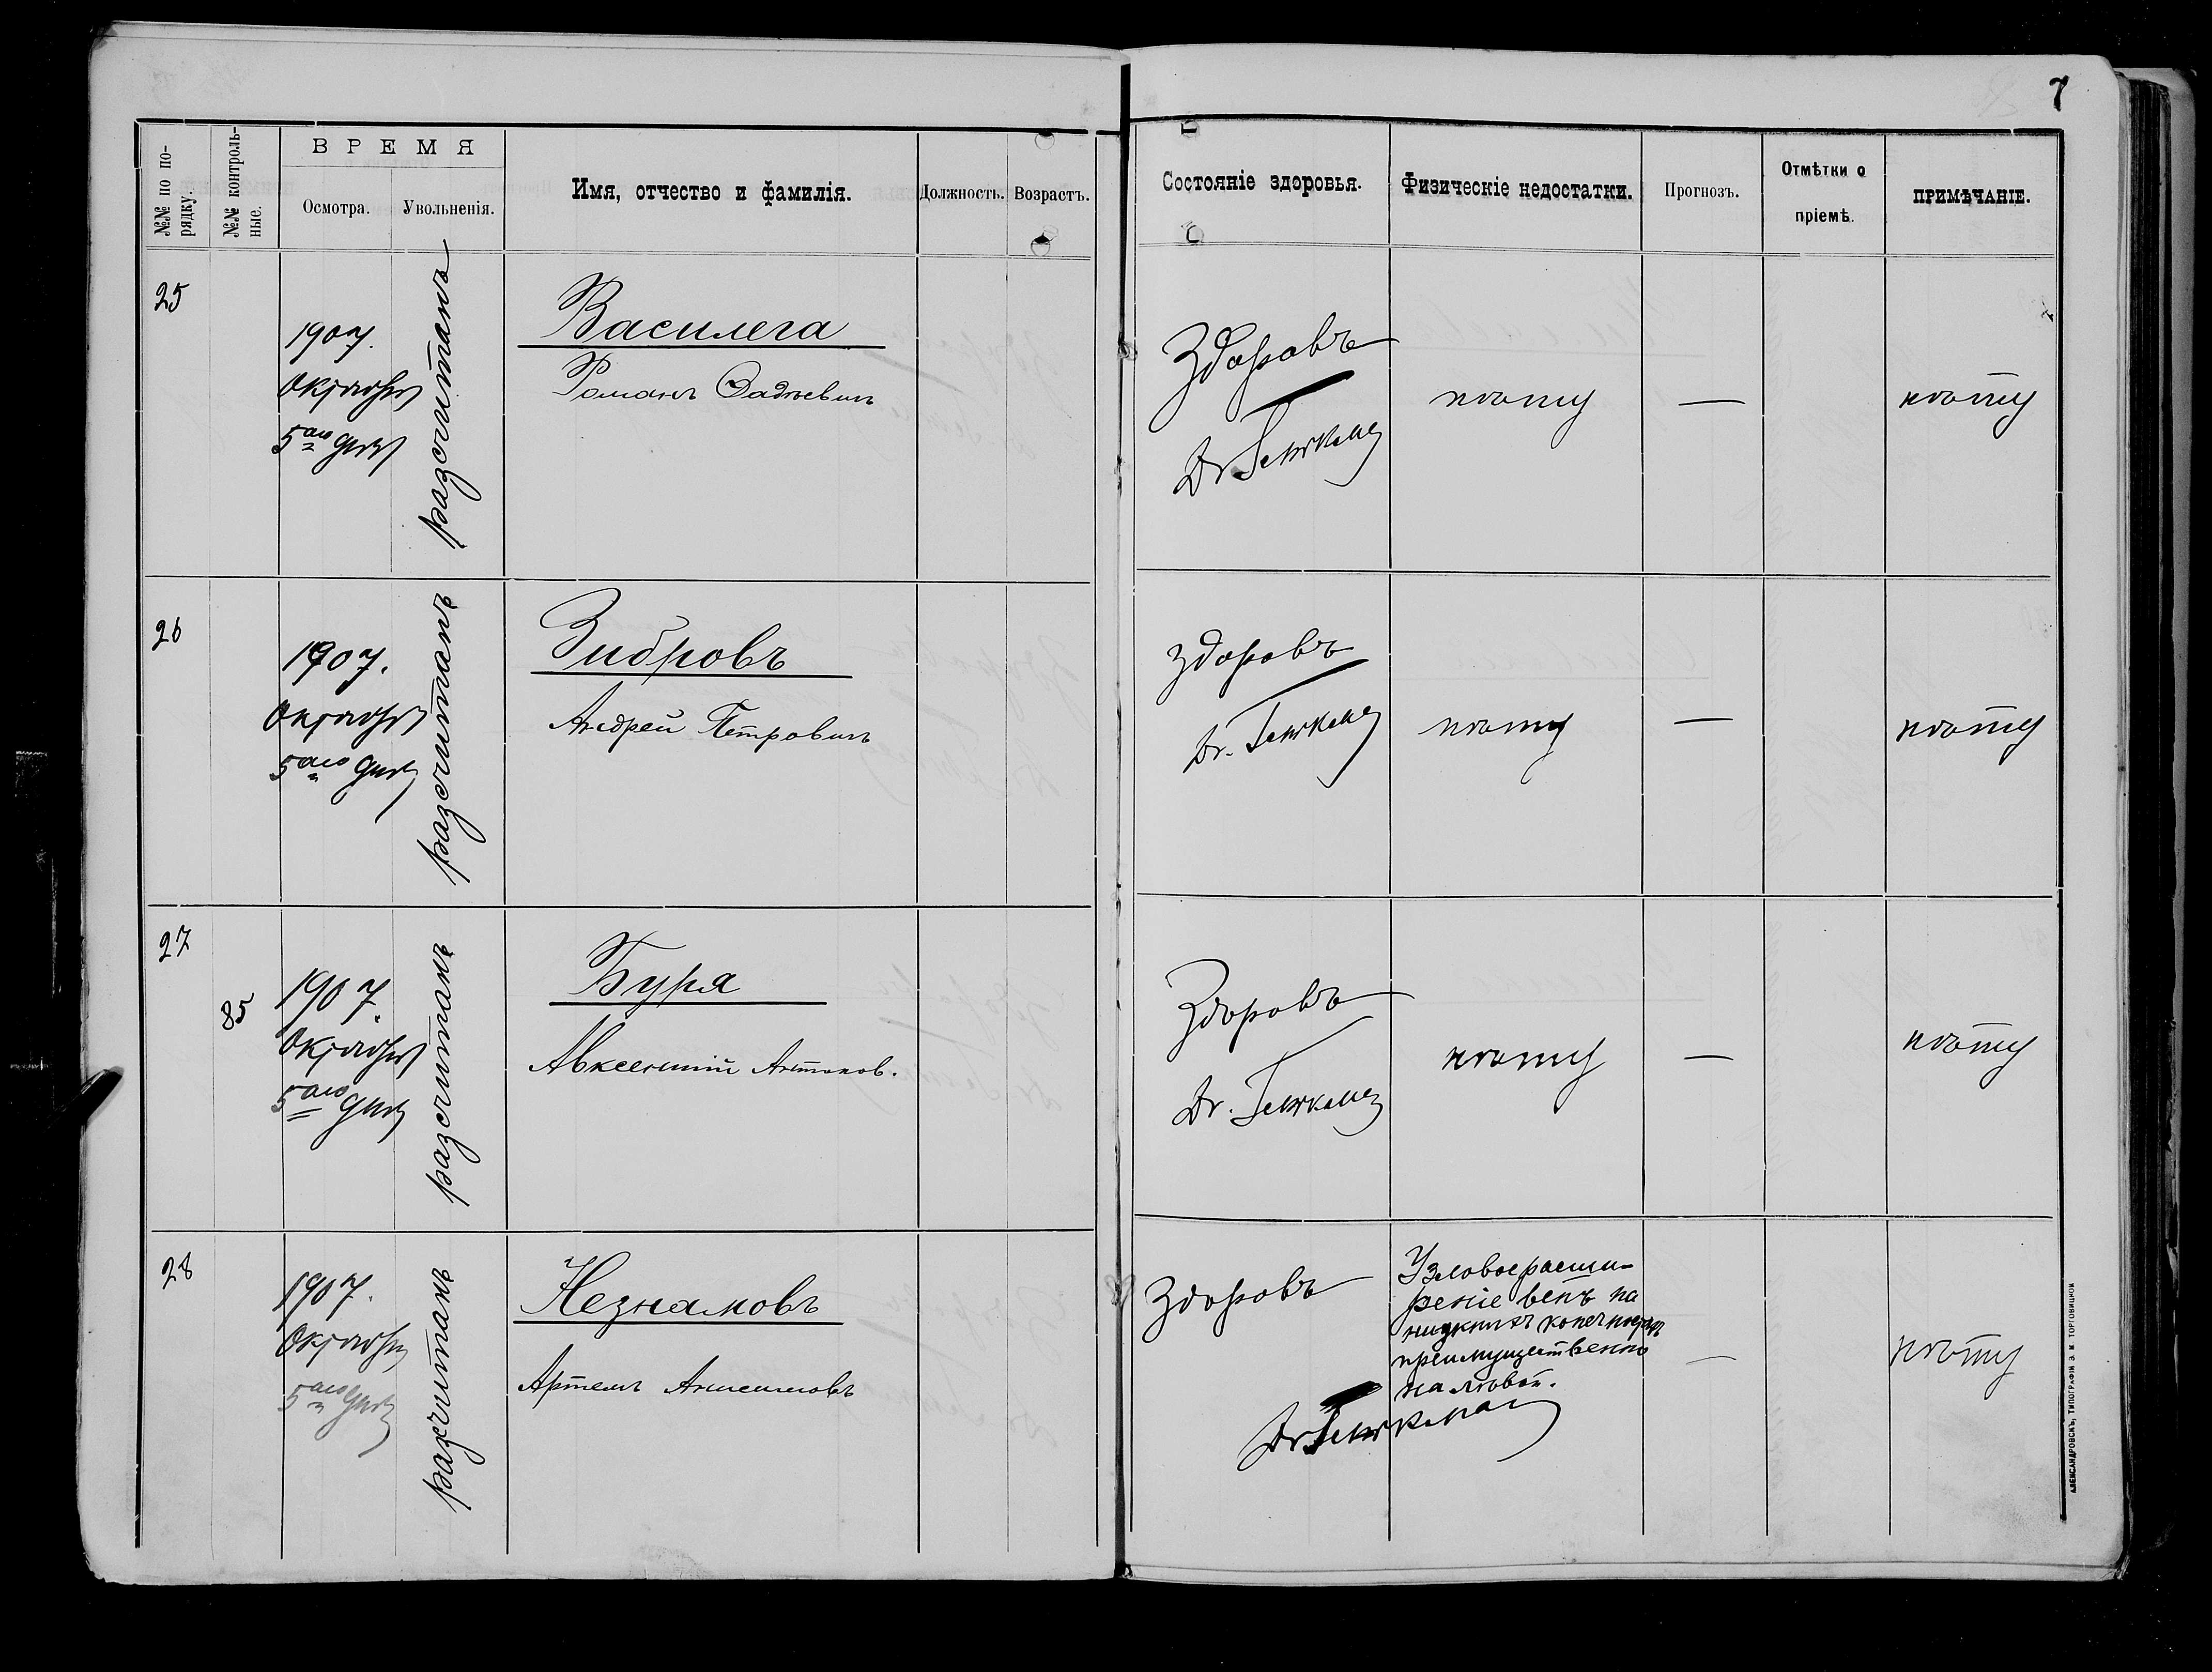 7
№№ по по-
рядку.
№№ контроль-
ные.
ВРЕМЯ
Осмотра.
Увольненія.
Имя, отчество и фамилія.
Должность.
Возрастъ.
Состояніе здоровья.
Физическіе недостатки.
Прогнозъ.
Отмѣтки о
пріемѣ.
ПРИМѢЧАНІЕ.
25
1907.
Октября
5аго дня
разсчитанъ
Василега
Романъ
Здоровъ
Dr
нѣту
—
нѣту
26
1907.
Октября
5аго дня
разсчитанъ
Зибровъ
Андрей Петровичъ
Здоровъ
Dr.
нѣту
—
нѣту
27
85
1907.
Октября
5аго дня
разсчитанъ
Буря
Авксентій Антонов.
Здоровъ
Dr.
нѣту
—
нѣту
28
1907.
Октября
5аго дня
разсчитанъ
Незнамовъ
Артемъ
Здоровъ
Узловое расши-
реніе венъ на
нижнихъ конечностяхъ
преимущественно
на лѣвой.
Dr
—
нѣту
АЛЕКСАНДРОВСКЪ, ТИПОГРАФІЯ Э. И. ТОРГОВИЦКОЙ